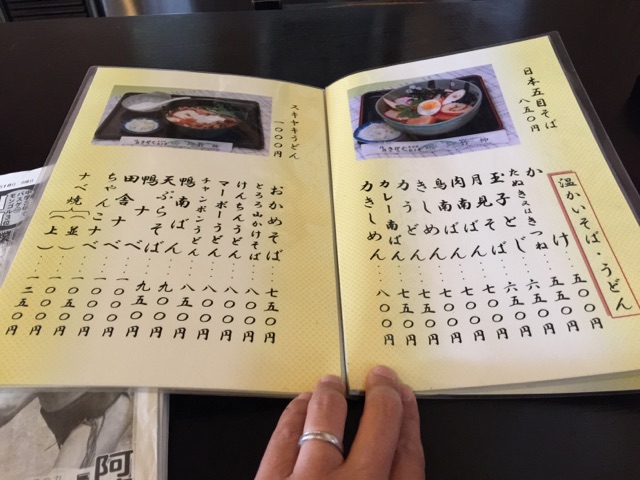 日本五目そば
八五〇円
温かいそば・うどん
かけ……五〇〇円
たぬき又はきつね……五五〇円
玉子とじ……六五〇円
月見そば……六五〇円
肉南ばん……七五〇円
鳥南ばん……七五〇円
きしめん……
力うどん……七五〇円
カレー南ばん……
力きしめん……八〇〇円
スキヤキうどん
一〇〇〇円
おかめそば……七五〇円
とろろ山かけそば……八〇〇円
けんちんうどん……八〇〇円
マーボーうどん……八〇〇円
チャンポンうどん……
鴨南ばん……八五〇円
天ぷらそば……九〇〇円
鴨ナベ……九五〇円
田舎ナベ……
ちゃんこナベ……
ナベ焼(並)……
(上)……一二五〇円
阿